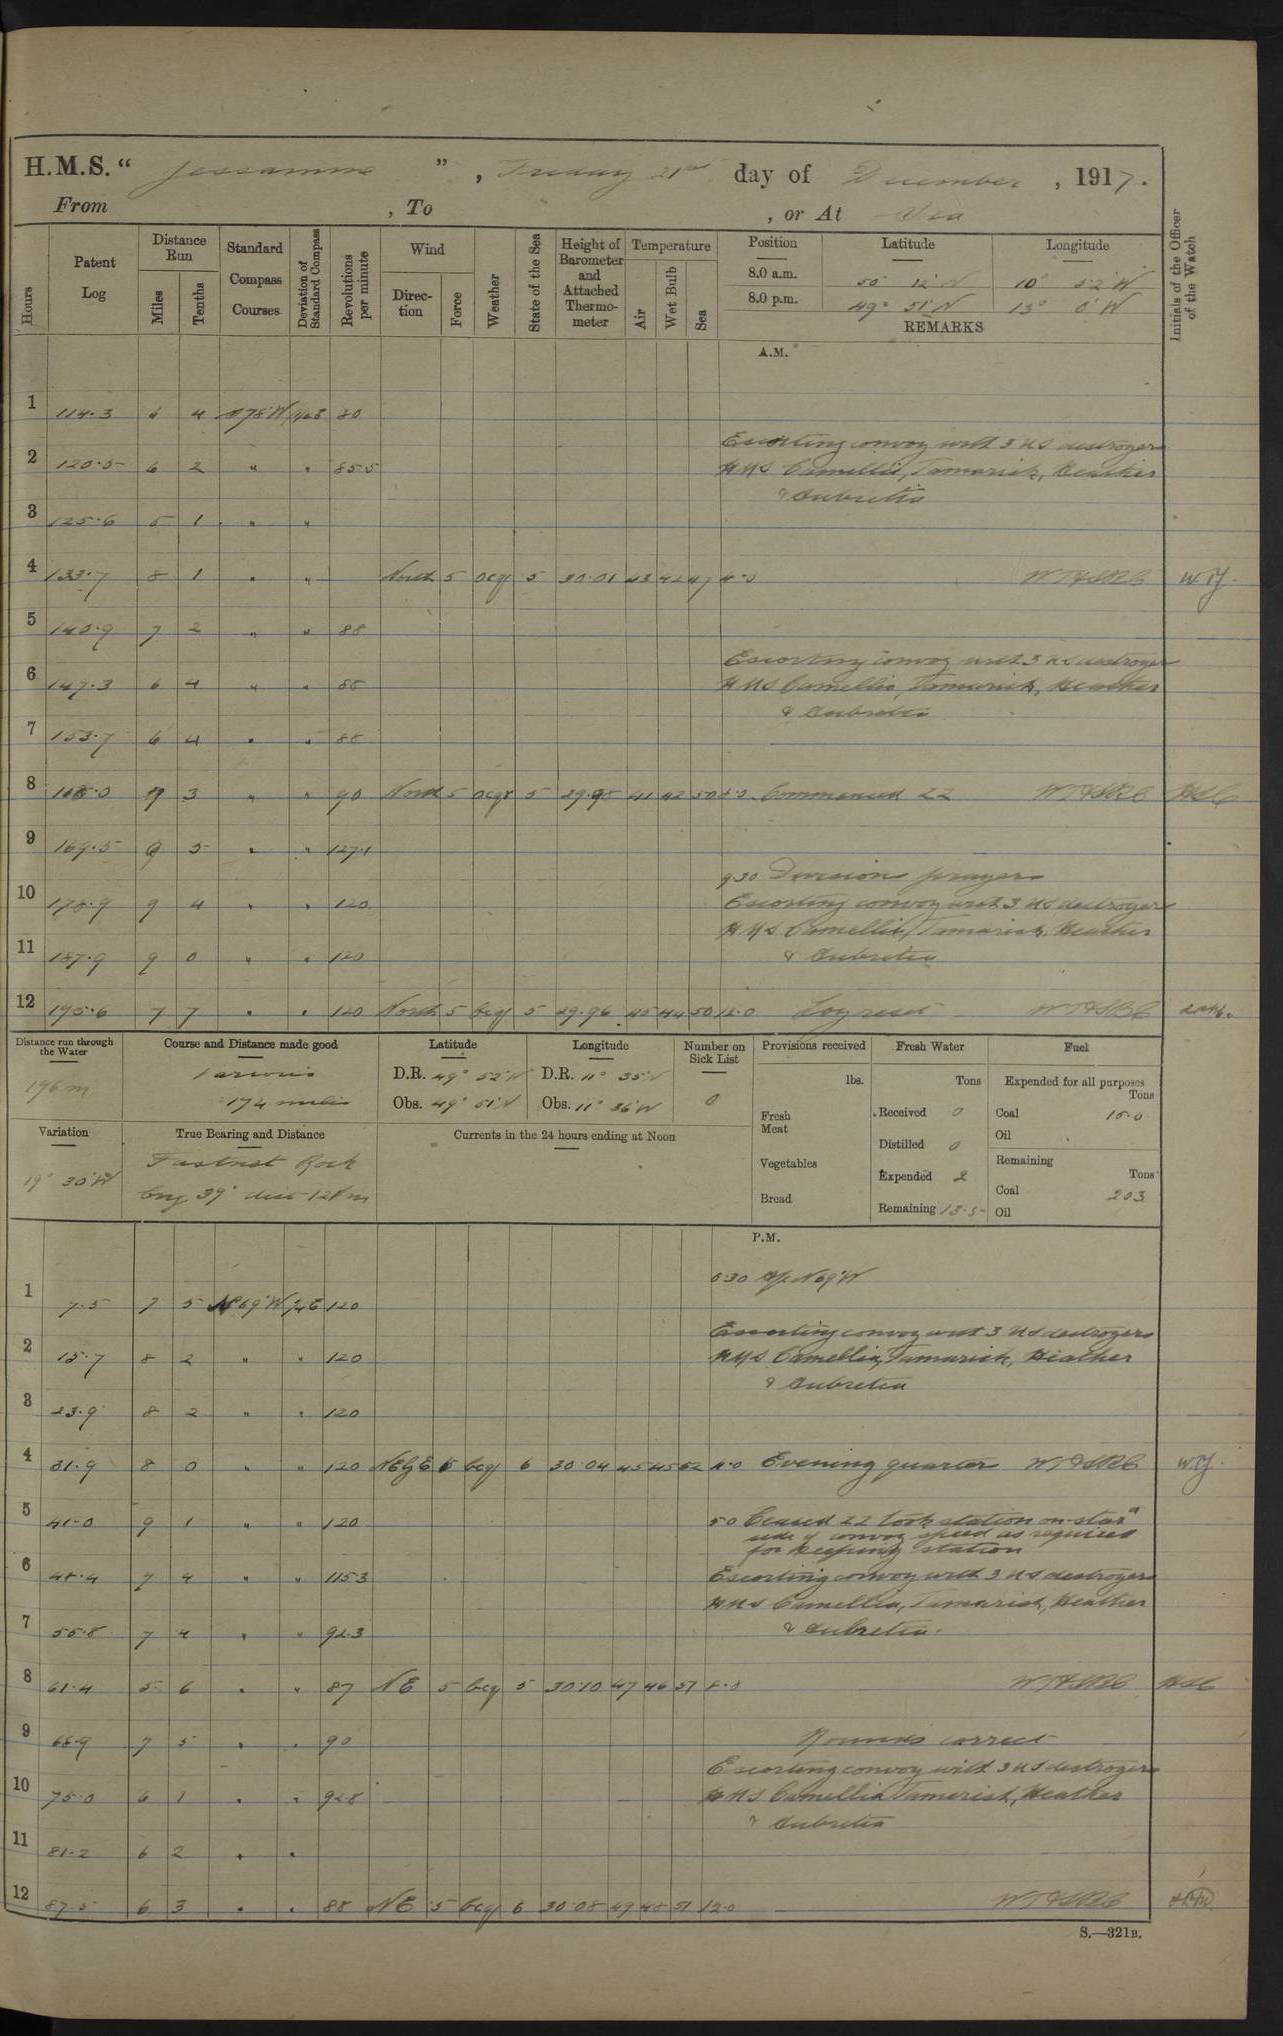 H.M.S. “ Jessamine ” , Friday 21st day of December , 1917.
From , To , or At Sea
Hours
Patent Log
Distance Run
Miles
Tenths
Standard Compass Courses
Deviation of Standard Compass
Revolutions per minute
Wind
Direction
Force
Weather
State of the Sea
Height of Barometer and Attached Thermometer
Temperature
Air
Wet Bulb
Sea
Position Latitude Longitude
8.0 a.m. 50° 12' N 10° 52' W
8.0 p.m. 49° 51' N 13° 0' W
REMARKS
Initials of the Officer of the Watch
A.M.
1 114.3 6 4 80
Escorting convoy with 3 US destroyers
2 120.5 6 2 " " 85.5 HMS Camellia, Tamarisk, Heather
& Aubretia
3 125.6 5 1 " "
4 133.7 8 1 " " North 5 5 30.01 43 42 47 4.0
5 140.9 7 2 " " 88
Escorting convoy with 3 US destroyers
6 147.3 6 4 " " 88 HMS Camellia, Tamarisk, Heather
& Aubretia
7 153.7 6 4 " " 88
8 3 " " 90 North 5 5 29.98 41 42 50 8.0 Commenced 22
9 169.5 9 5 " " 127.1
9.30 Divisions prayers
10 178.9 9 4 " " 120 Escorting convoy with 3 US destroyers
HMS Camellia, Tamarisk, Heather
11 187.9 9 0 " " 120 & Aubretia
12 195.6 7 7 " " 120 North 5 5 29.96 45 44 50 12.0 Log reset
Distance run through the Water
196 m
Course and Distance made good
Various
174 miles
Latitude
D.R. 49° 52' N
Obs. 49° 51' N
Longitude
D.R. 11° 35'
Obs. 11° 36' W
Number on Sick List
0
Provisions received
lbs.
Fresh Meat
Vegetables
Bread
Fresh Water
Tons
Received 0
Distilled 0
Expended 2
Remaining 13.5
Fuel
Expended for all purposes
Tons
Coal 15.0
Oil
Remaining
Tons
Coal 203
Oil
Variation
19° 30' W
True Bearing and Distance
Fastnet Rock
brg 39° dist 128 m
Currents in the 24 hours ending at Noon
P.M.
N 69° W
1 7.5 7 5 N 69° W 120
Escorting convoy with 3 US destroyers
2 15.7 8 2 " " 120 HMS Camellia, Tamarisk, Heather
& Aubretia
3 23.9 8 2 " " 120
4 31.9 8 0 " " 120 6 30.04 45 45 52 4.0 Evening quarters
5 41.0 9 1 " " 120 5.0 Ceased 22 took station on stard
side of convoy speed as required
for keeping station
6 48.4 7 4 " " 115.3 Escorting convoy with 3 US destroyers
HMS Camellia, Tamarisk, Heather
7 55.8 7 4 " " 92.3 & Aubretia.
8 61.4 5 6 " " 87 NE 5 5 30.10 47 46 51 8.0
9 68.9 7 5 " " 90 Rounds correct
Escorting convoy with 3 US destroyers
10 75.0 6 1 " " 92.8 HMS Camellia Tamarisk, Heather
& Aubretia
11 81.2 6 2 " "
12 87.5 6 3 " " 88 NE 5 6 30.08 49 48 51 12.0
S.—321B.